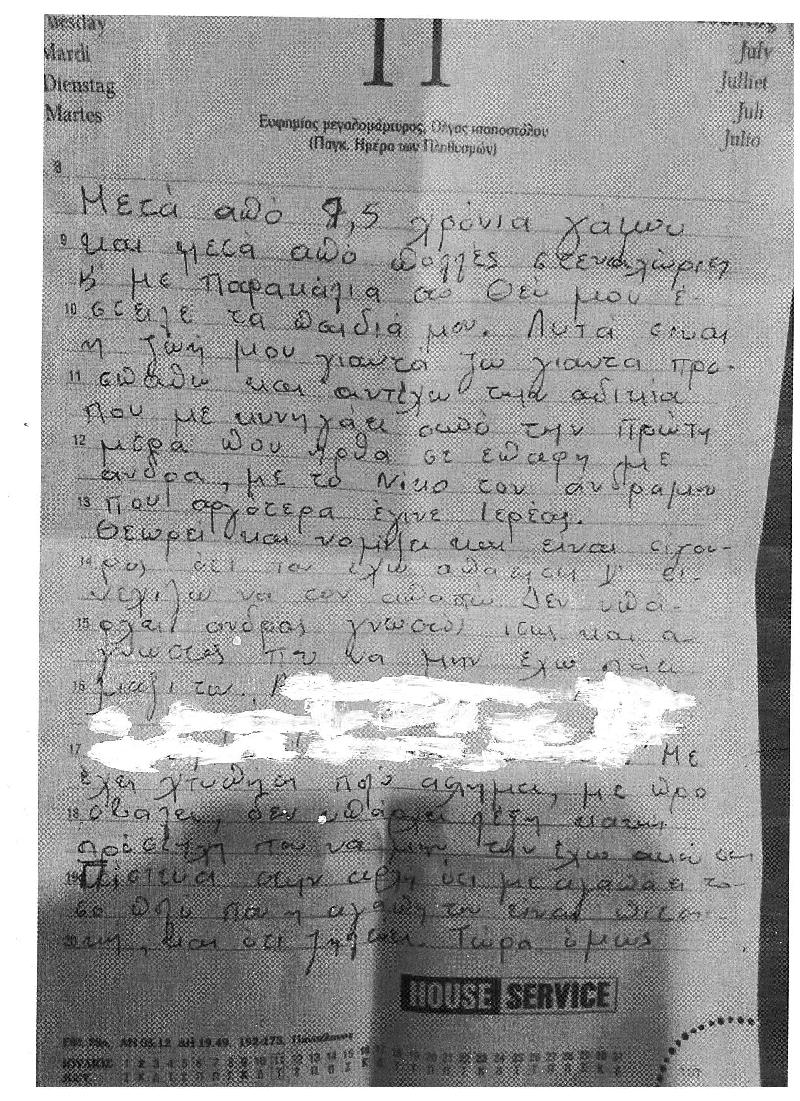 Tuesday
Mardi
Dienstag
Martes
11
July
Julliet
Juli
Julio
Ευφημίας μεγαλομάρτυρος, Όλγας ισαποστόλου
(Παγκ. Ημέρα των Πληθυσμών)
8
Μετά από 9,5 χρόνια γάμου
9 και μετά από πολλές στεναχώριες
κ' με Παρακάλια στο Θεό μου έ-
10 στειλε τα παιδιά μου. Αυτά είναι
η ζωή μου γιαυτά ζω γιαυτα προ-
11 σπαθώ και αντέχω την αδικία
που με κυνηγάει από την Πρώτη
12 μέρα που ήρθα σε επαφή με
άνδρα, με το Νίκο τον άνδραμου
13 που αργότερα έγινε Ιερέας.
Θεωρεί και νομίζει και είναι σίγου-
14 ρος ότι τον έχω απατήσει κ' συ-
νεχίζω να τον απατώ Δεν υπά-
15 ρχει άνδρας γνωστός και α-
γνωστος που να μην έχω πάει
16 μαζί του.
17 Με
έχει χτυπήσει πολύ άσχημα, με προ
18 σβάλει, δεν υπάρχει λέξη
πρόστυχη που να μην την έχω ακού σει
19 Πίστευα στην αρχή ότι με αγαπάει τό-
σο πολύ που η αγάπη του είναι
20 και ότι ζηλεύει. Τώρα όμως
HOUSE SERVICE
ΙΟΥΛΙΟΣ 1 2 3 4 5 6 7 8 9 10 11 12 13 14 15 16 17 18 19 20 21 22 23 24 25 26 27 28 29 30 31
JULY